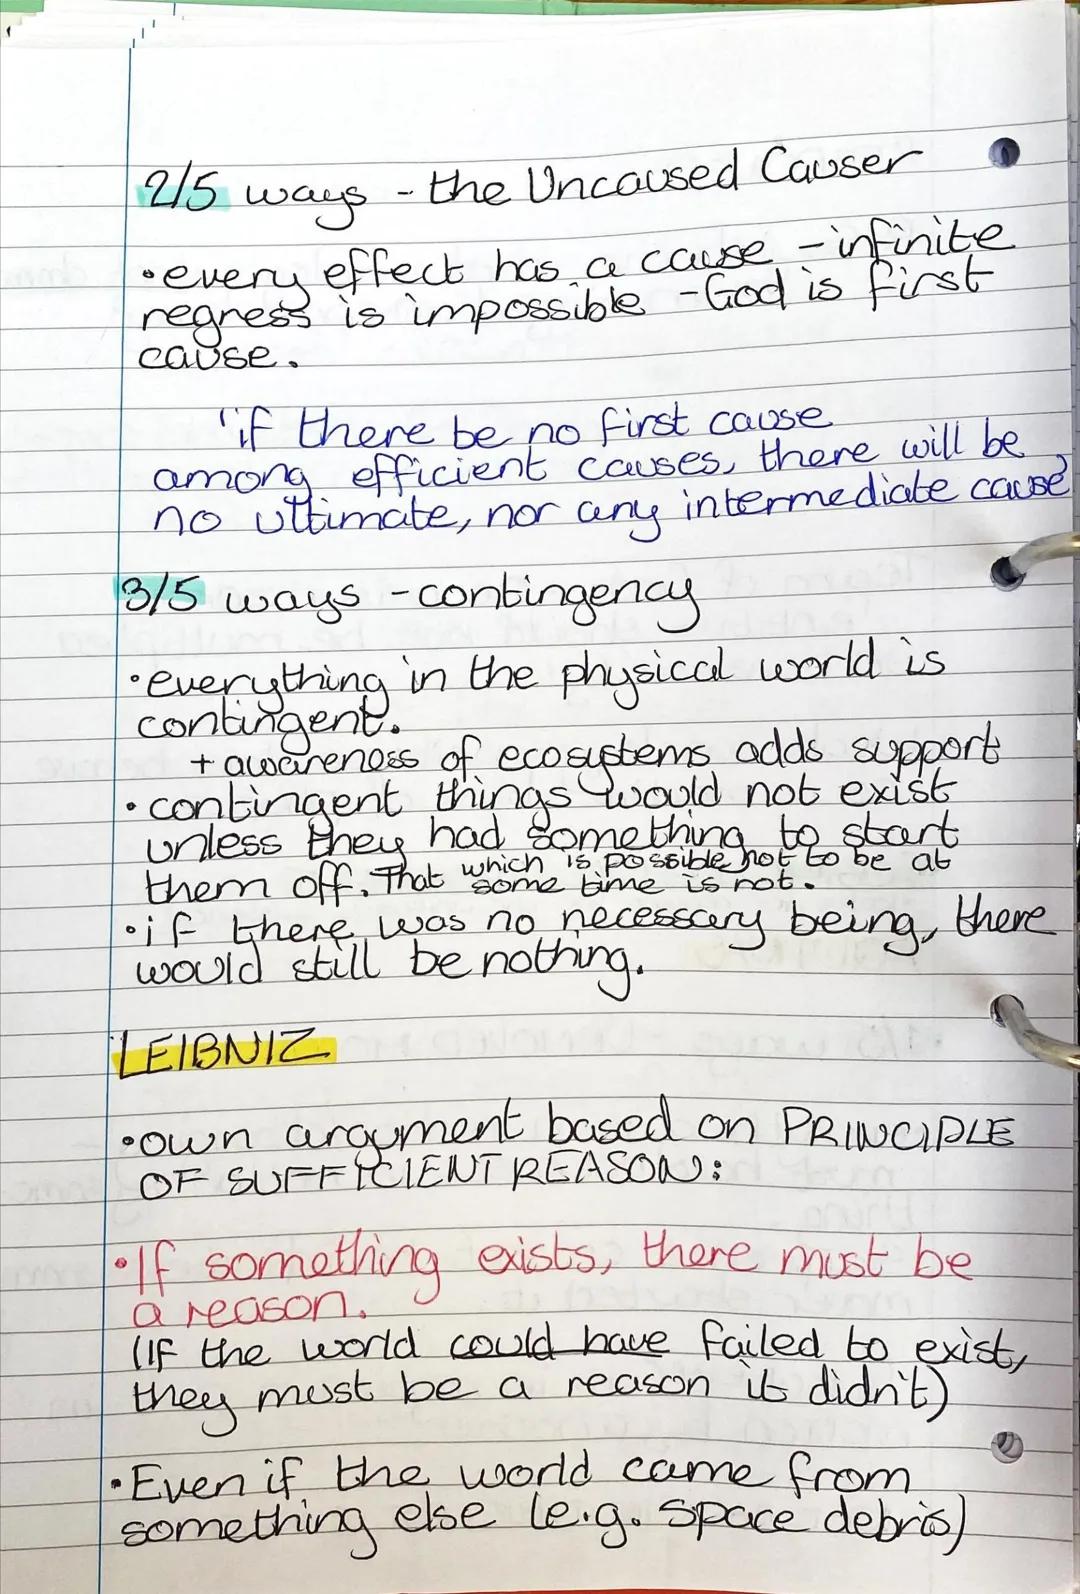 2/5 ways - the Uncaused Causer
•every effect has a cause - infinite
regress is impossible - God is first
cause.
"if there be no first cause
among efficient causes, there will be
no ultimate, nor any intermediate cause"
3/5 ways - contingency
•everything in the physical world is
contingent.
+ awareness of ecosystems adds support
•contingent things would not exist
unless they had something to start
them off. That which is possible not to be at
some time is not.
•if there was no necessary being, there
would still be nothing.
LEIBNIZ
•own argument based on PRINCIPLE
OF SUFFICIENT REASON:
•If something exists, there must be
a reason.
(If the world could have failed to exist,
they must be a reason it didn't)
•Even if the world came from
something else (e.g. space debris)